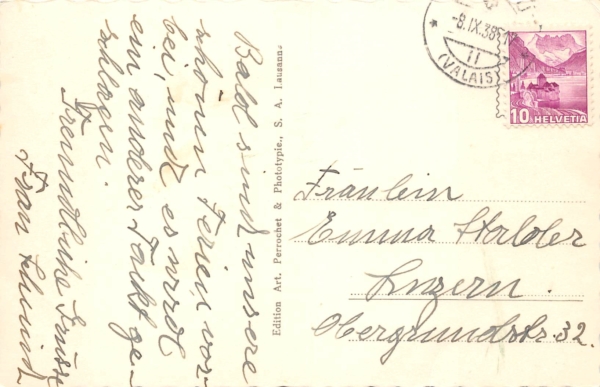 Bald sind unsere
schönen Ferien vor-
bei, und es wird
ein anderer Takt ge-
schlagen.
Freundliche Grüsse
Edition Art. Perrochet & Phototypie., S. A. Lausanne
-8.IX.38
11
(VALAIS)
10 HELVETIA
Fräulein
Emma
Luzern.
Obergrundstr. 32.